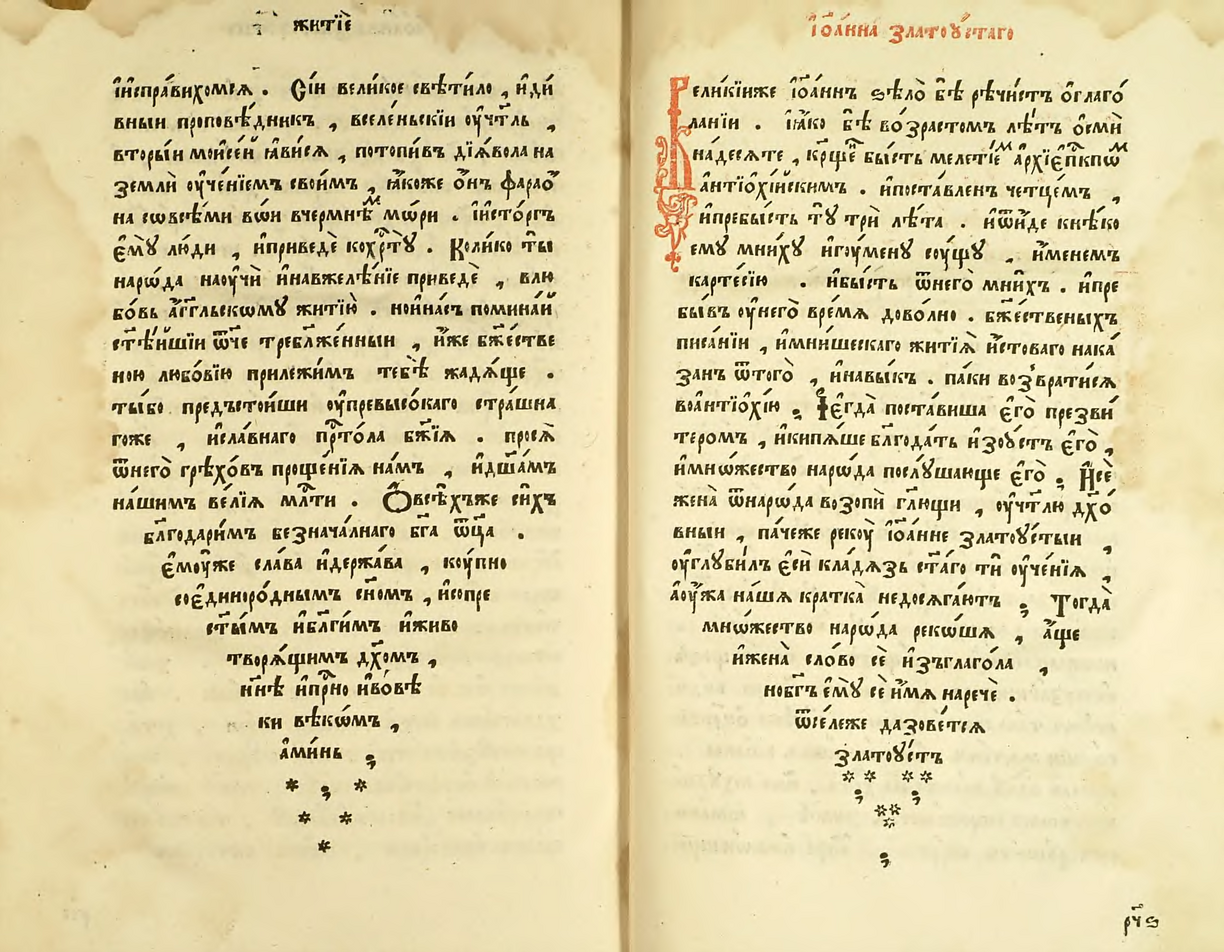 житїѐ
і҆испра́вихомсѧ . Сїи вели́кое свѣти́ло , и҆ди́
вныи проповѣ́дникъ , вселе́ньскїи ᲂу҆чт҃ль ,
вторы́и моисе́й ꙗ҆ви́сѧ , потопи́въ дїѧ́вола на
землѝ ᲂу҆че́нїемъ свои́мъ , ꙗ҆́коже о҆́нъ фарао̀
на сѡвсѣ́ми во́и вчермнѣ́мъ мо́ри . і҆исто́ргъ
є҆мꙋ̀ лю́ди , и҆приведѐ кохрⷭ҇тꙋ̀ . Коли́ко ты̀
наро́да наᲂу҆чѝ и҆навжелѣ́нїе приведѐ , влю
бо́вь а҆́гг҃льскомꙋ житїю̀ . нои҆на́съ помина́й
ст҃ѣ́йшїи ѿч҃е требл҃же́нныи , и҆́же бж҃естве
ною любо́вїю прилежи́мъ тебѣ̀ жадѧ́ще .
ты́бо предъстои́ши ᲂу҆превысо́каго стра́шна
гоже , и҆сла́внаго прⷭ҇то́ла бж҃їѧ . просѧ̀
ѿнего̀ грѣхо́въ проще́нїѧ на́мъ , и҆дш҃а́мъ
на́шимъ ве́лїѧ млⷭ҇ти . Ѻ҆всѣ́хъже си́хъ
бл҃годари́мъ безнача́лнаго бг҃а ѿц҃а .
є҆мᲂу́же сла́ва и҆держа́ва , кᲂу́пно
соє҆диноро́днымъ сн҃омъ , и҆сопре
ст҃ы́мъ и҆бл҃ги́мъ и҆живо
творѧ́щимъ дх҃омъ ,
нн҃ѣ и҆прⷭ҇но и҆во́вѣ
ки вѣкѡ́мъ ,
а҆ми́нь ;
і҆ѡа́нна златоꙋ́стаго
Вели́кїиже і҆оа́ннъ ѕѣлѡ̀ бѣ̀ рѣ́чистъ ѻ҆глаго́
ланїи . ꙗ҆́ко бѣ̀ во́зрастомъ лѣ́тъ ѻ҆смѝ
на́десѧте , крⷭ҇ще́нъ бы́сть меле́тїемъ а҆рхїе҆пⷭ҇кпѡмъ
а҆нтїо҆хі́йскимъ . и҆поста́вленъ четце́мъ ,
и҆пребы́сть тꙋ̀ трѝ лѣ́та . и҆ѿи́де кнѣ́ко
ему мни́хꙋ и҆гꙋ́менꙋ сꙋ́щꙋ , и҆́менемъ
карте́сїю . и҆бы́сть ѿнего̀ мни́хъ . и҆пре
бы́въ ᲂу҆него̀ вре́мѧ дово́лно . бж҃е́ственыхъ
писа́нїи , и҆мни́шескаго житїѧ̀ и҆́стоваго нака́
занъ ѿтого̀ , и҆навы́къ . па́ки возврати́сѧ
воа҆нтїо҆хі́ю ; І҆є҆гда̀ поста́виша є҆го̀ презви́
теромъ , и҆кипѧ́ше бл҃года́ть и҆зᲂу́стъ є҆го̀ ,
и҆мно́жество наро́да послꙋ́шающе є҆го̀ ; И҆сѐ
жена̀ ѿнаро́да возопѝ гл҃ющи , ᲂу҆чт҃лю дх҃о́
вныи , па́чеже рекᲂу̀ і҆оа́нне златоꙋ́стыи ,
ᲂу҆глꙋби́лъ є҆сѝ кла́дѧзь ст҃а́го тѝ ᲂу҆че́нїѧ ,
а҆ᲂу҆́жа на́шѧ кратка̀ недосѧга́ютъ ; Тогда̀
мно́жество наро́да реко́шѧ , а҆́ще
и҆жена̀ сло́во сѐ и҆зъглаго́ла ,
нобг҃ъ є҆мꙋ̀ сѐ и҆́мѧ наречѐ .
ѿсе́леже дазове́тсѧ
златоꙋ́стъ
рч҃ѕ